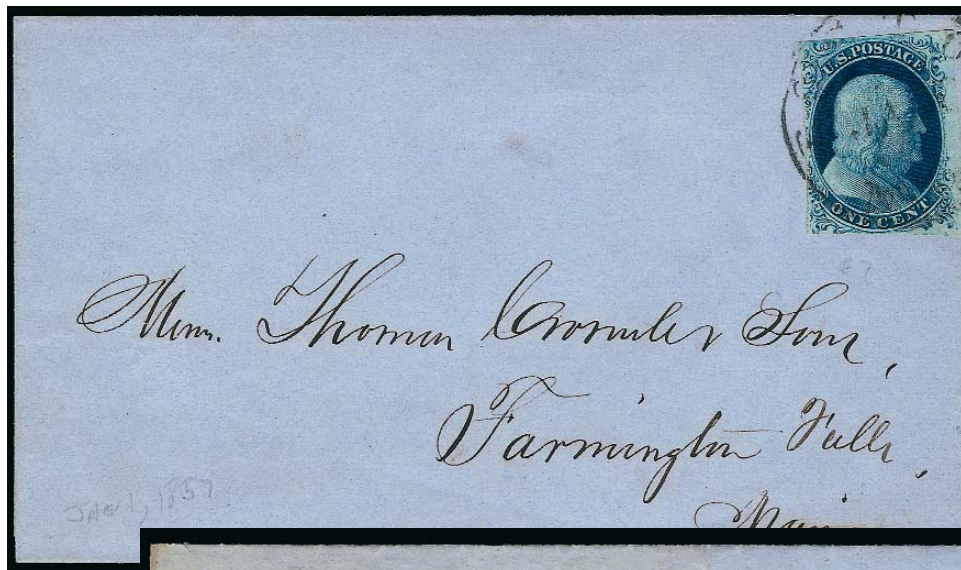 U.S. POSTAGE
ONE CENT
Messrs. Thomas & Sons,
Farmington Falls,
Main
Jan 1, 1857